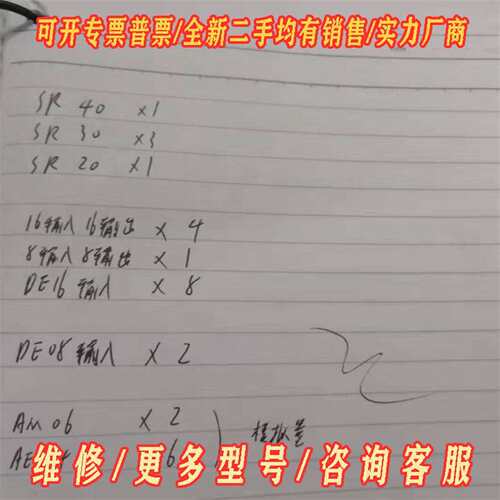 可开专票普票/全新二手均有销售/实力厂商
SR 40 x1
SR 30 x3
SR 20 x1
16输入 16输出 x 4
8输入 8输出 x 1
DE16 输入 x 8
DE08 输入 x 2
AM 06 x 2
模拟量
AE 6
维修/更多型号/咨询客服